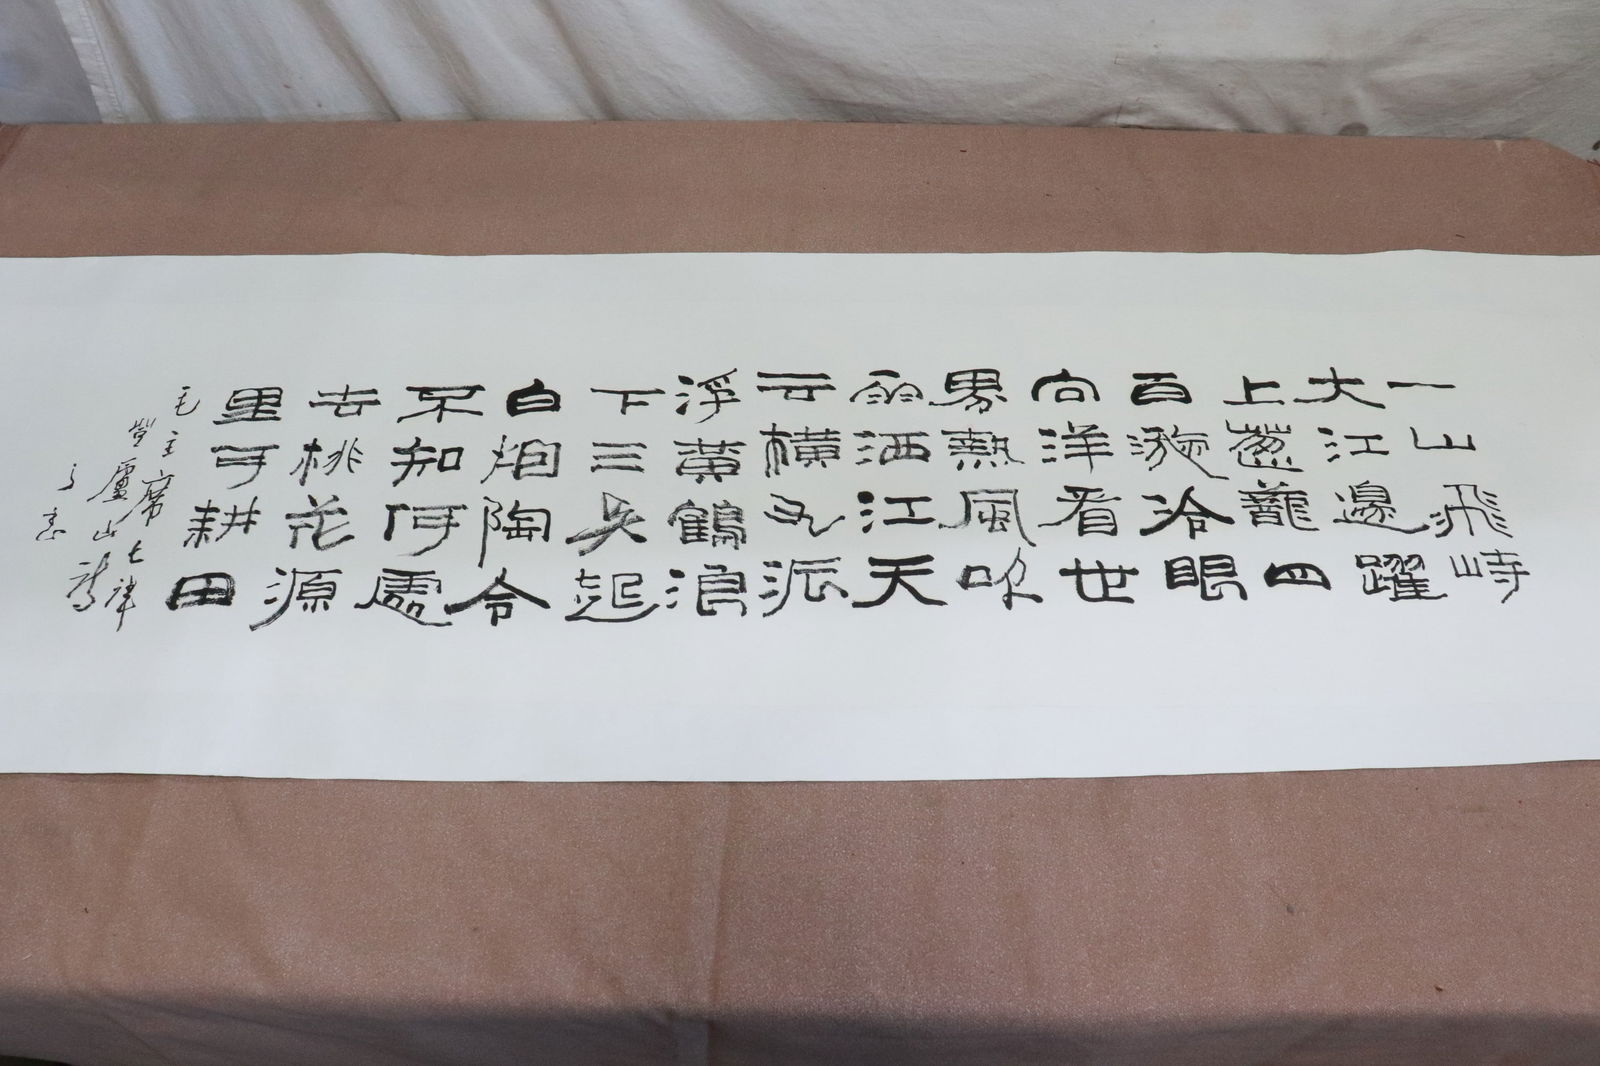 一山飛峙
大江邊躍
上蔥蘢四
百漩冷眼
向洋看世
界熱風吹
雨洒江天
云橫九派
浮黃鶴浪
下三吳起
白烟陶令
不知何處
去桃花源
里可耕田
毛主席七律
登廬山詩